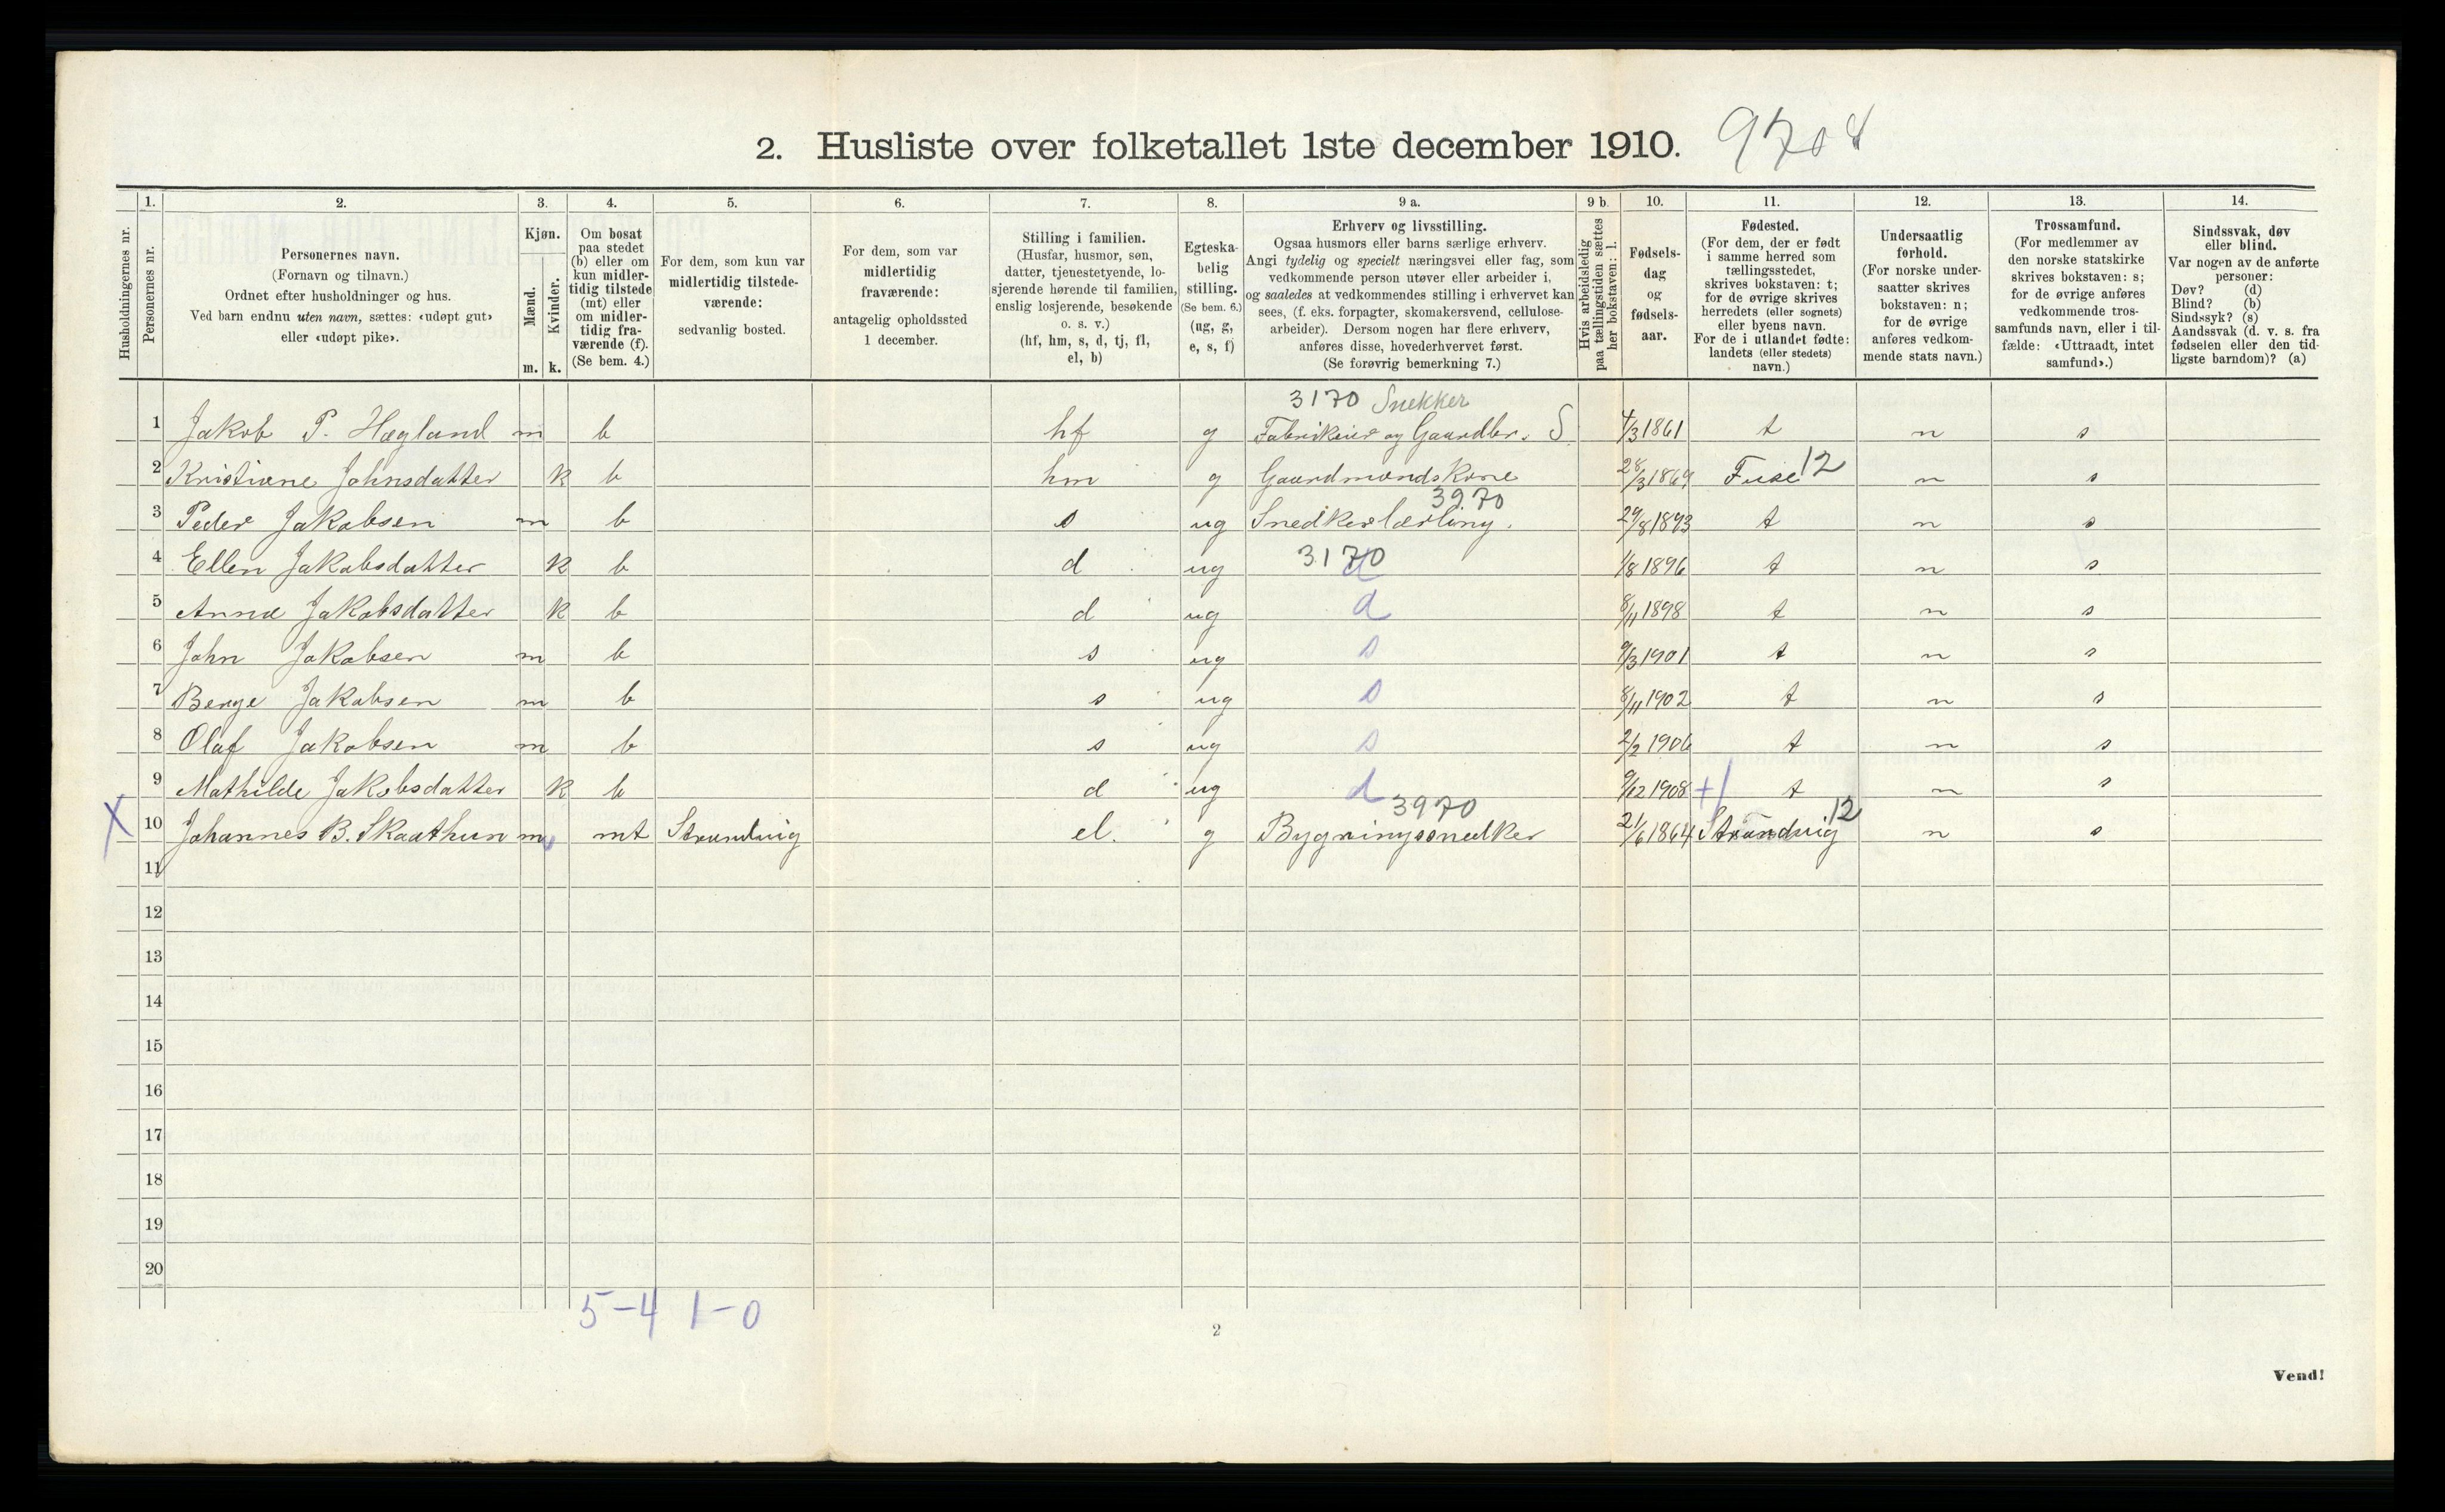 2. Husliste over folketallet 1ste december 1910. 9708
1. 2. 3. 4. 5. 6. 7. 8. 9 a. 9 b. 10. 11. 12. 13. 14.
Husholdningernes nr.
Personernes nr.
Personernes navn.
(Fornavn og tilnavn.)
Ordnet efter husholdninger og hus.
Ved barn endnu uten navn, sættes: «udøpt gut»
eller «udøpt pike».
Kjøn.
Mænd.
Kvinder.
m. k.
Om bosat
paa stedet
(b) eller om
kun midler-
tidig tilstede
(mt) eller
om midler-
tidig fra-
værende (f).
(Se bem. 4.)
For dem, som kun var
midlertidig tilstede-
værende:
sedvanlig bosted.
For dem, som var
midlertidig
fraværende:
antagelig opholdssted
1 december.
Stilling i familien.
(Husfar, husmor, søn,
datter, tjenestetyende, lo-
sjerende hørende til familien,
enslig losjerende, besøkende
o. s. v.)
(hf, hm, s, d, tj, fl,
el, b)
Egteska-
belig
stilling.
(Se bem. 6.)
(ug, g,
e, s, f)
Erhverv og livsstilling.
Ogsaa husmors eller barns særlige erhverv.
Angi tydelig og specielt næringsvei eller fag, som
vedkommende person utøver eller arbeider i,
og saaledes at vedkommendes stilling i erhvervet kan
sees, (f. eks. forpagter, skomakersvend, cellulose-
arbeider). Dersom nogen har flere erhverv,
anføres disse, hovederhvervet først.
(Se forøvrig bemerkning 7.)
Hvis arbeidsledig
paa tællingstiden sættes
her bokstaven: l.
Fødsels-
dag
og
fødsels-
aar.
Fødested.
(For dem, der er født
i samme herred som
tællingsstedet,
skrives bokstaven: t;
for de øvrige skrives
herredets (eller sognets)
eller byens navn.
For de i utlandet fødte:
landets (eller stedets)
navn.)
Undersaatlig
forhold.
(For norske under-
saatter skrives
bokstaven: n;
for de øvrige
anføres vedkom-
mende stats navn.)
Trossamfund.
(For medlemmer av
den norske statskirke
skrives bokstaven: s;
for de øvrige anføres
vedkommende tros-
samfunds navn, eller i til-
fælde: «Uttraadt, intet
samfund».)
Sindssvak, døv
eller blind.
Var nogen av de anførte
personer:
Døv? (d)
Blind? (b)
Sindssyk? (s)
Aandssvak (d. v. s. fra
fødselen eller den tid-
ligste barndom)? (a)
3170 Snekker
1 Jakob P. Hægland m b hf g Fabrikeier og Gaardbr. S 4/3 1861 t n s
2 Kristiane Johnsdatter k b hm g Gaardmandskone 28/3 1869 Fuse 12 n s
3970
3 Peder Jakobsen m b s ug Snedkerlærling. 29/8 1893 t n s
4 Ellen Jakobsdatter k b d ug 3170 d 1/8 1896 t n s
5 Anna Jakobsdatter k b d ug d 8/11 1898 t n s
6 John Jakobsen m b s ug s 9/3 1901 t n s
7 Berge Jakobsen m b s ug s 8/11 1902 t n s
8 Olaf Jakobsen m b s ug s 2/2 1906 t n s
9 Mathilde Jakobsdatter k b d ug d 9/12 1908 + t n s
3970
X 10 Johannes B. Skaathun m mt Strandvig el. g Bygningssnedker 21/6 1864 Strandvig 12 n s
11
12
13
14
15
16
17
18
19
20
5-4 1-0
2
Vend!